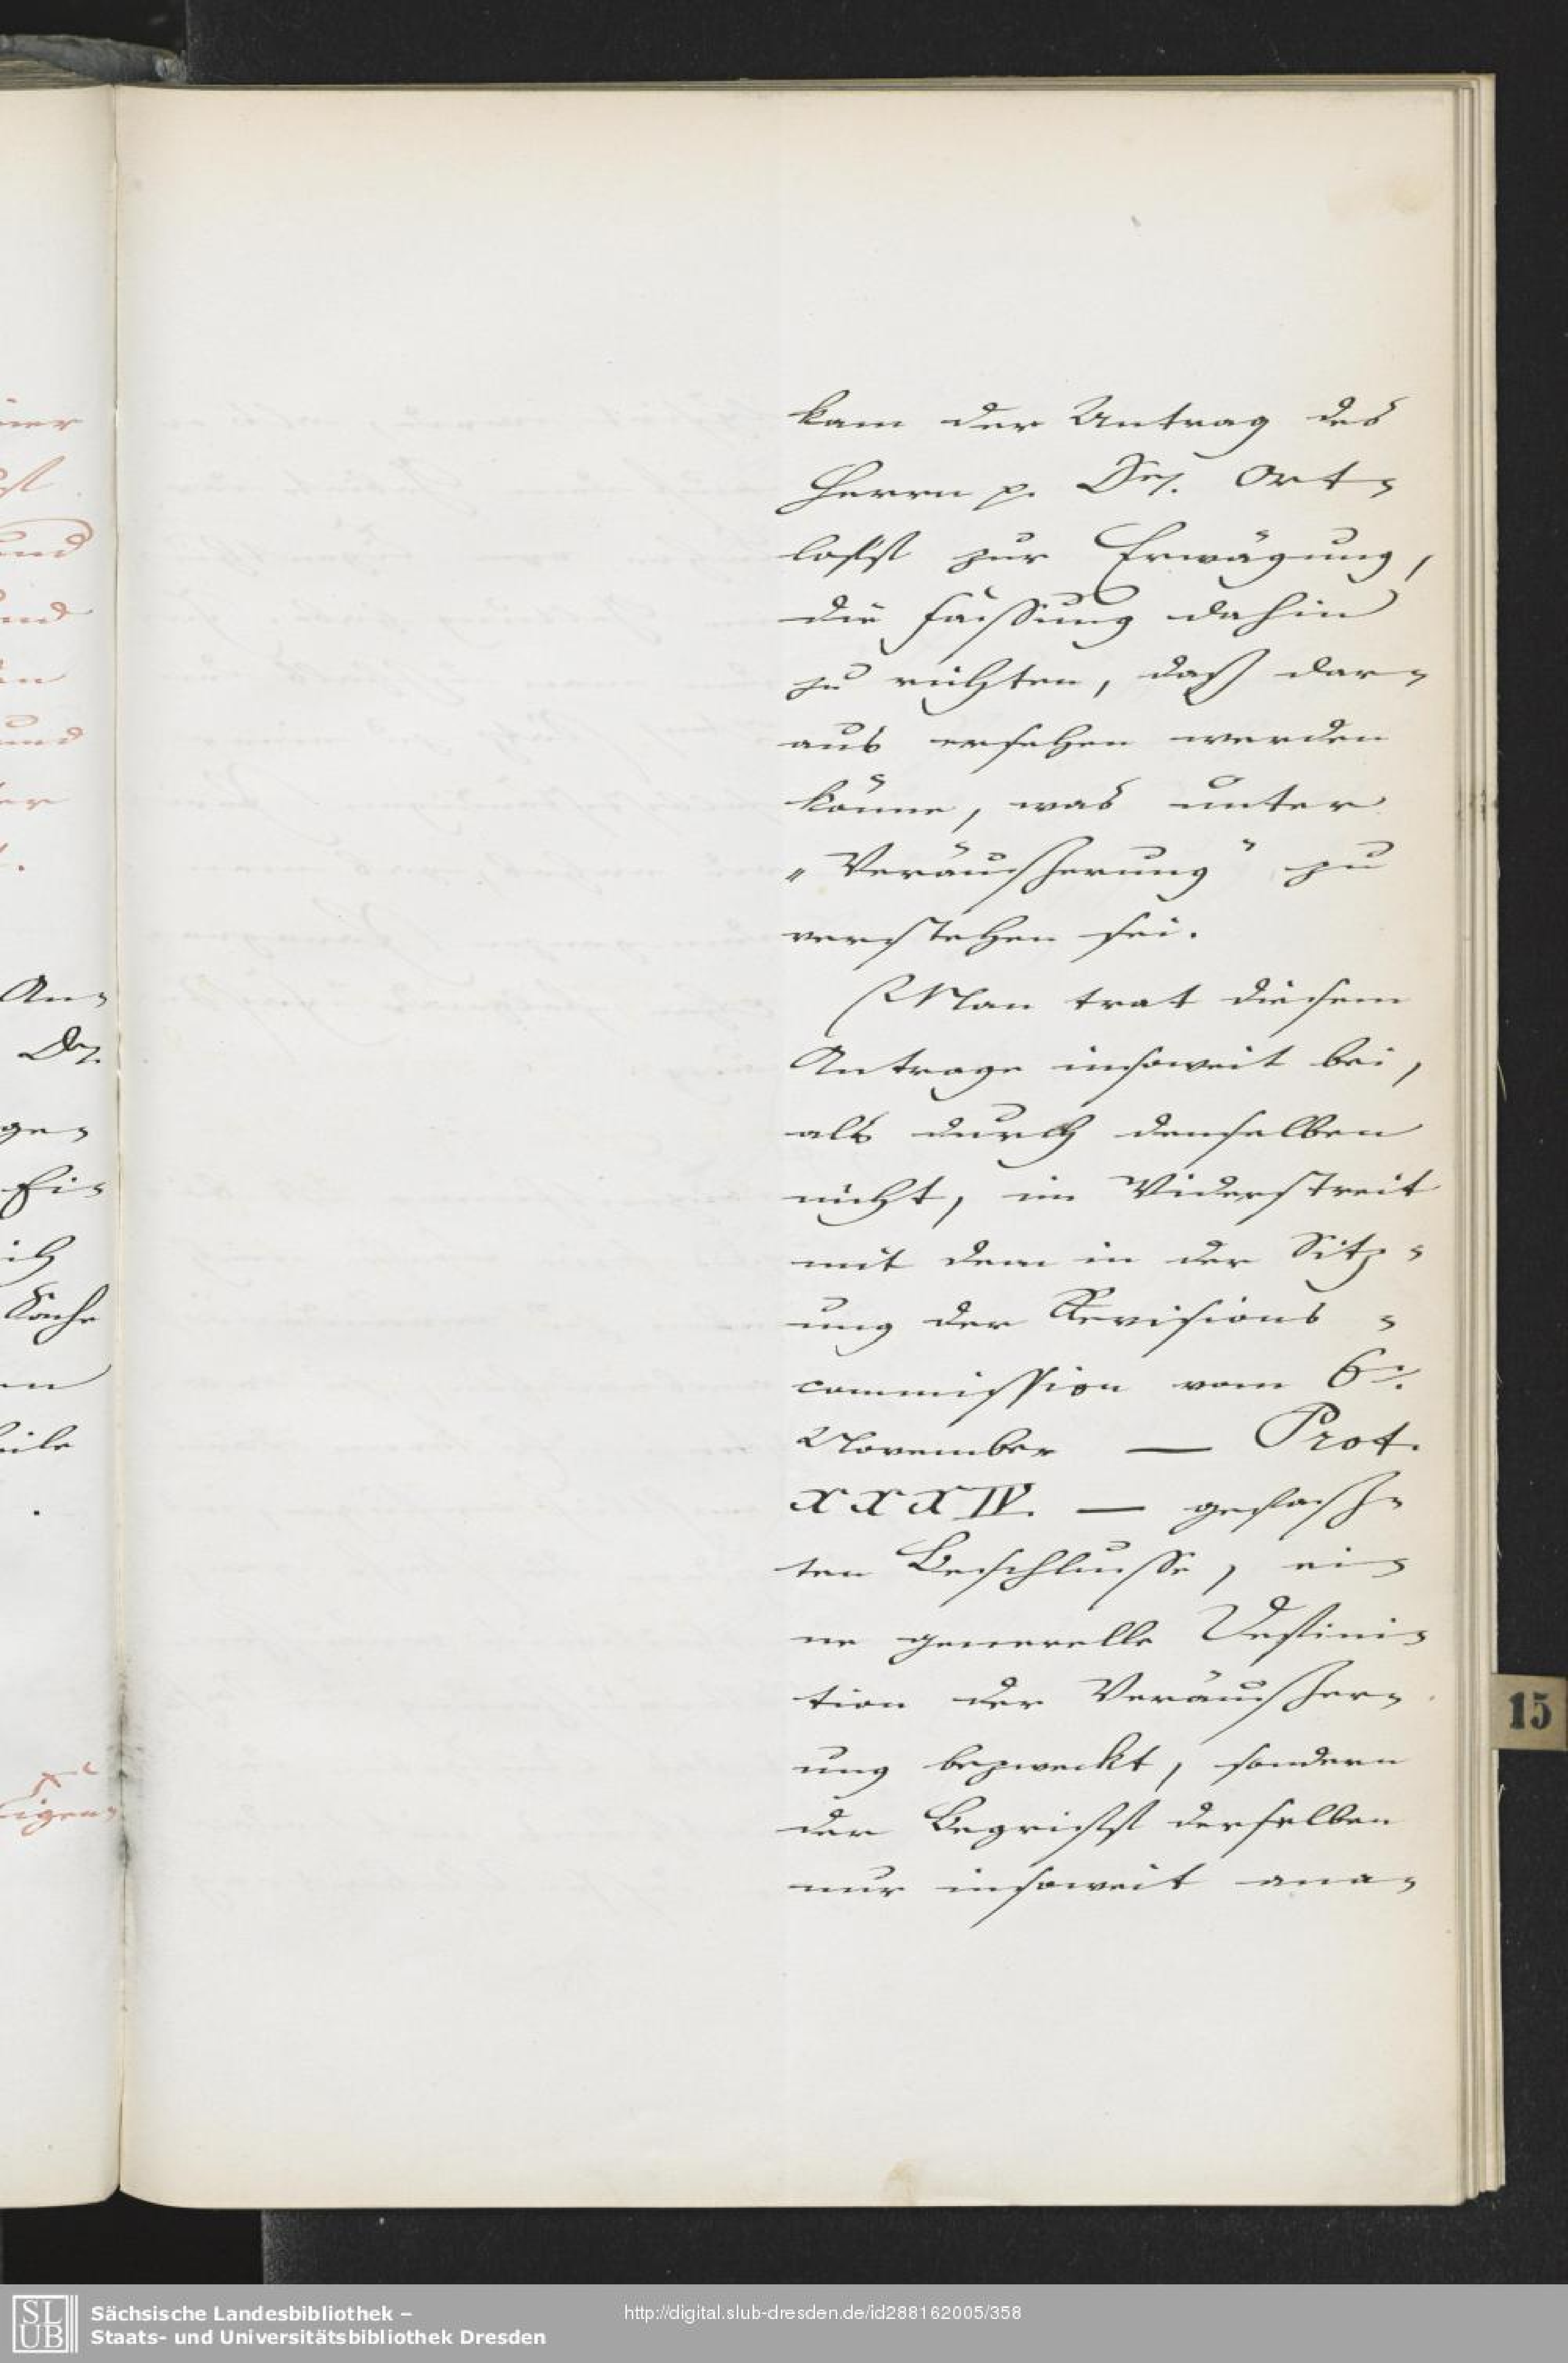 kam der Antrag des
Herrn p. Dr. Ort-
loff zur Erwägung,
die Fassung dahin
zu richten, daß dar-
aus ersehen werden
könne, was unter
„Veräußerung" zu
verstehen sei.
Man trat diesem
Antrage insoweit bei,
als durch denselben
nicht, im Widerstreit
mit dem in der Sitz-
ung der Revisions-
commission vom 6.
November — Prot.
XXXIV. — gefaß-
ten Beschlusse, ei-
ne generelle Defini-
tion der Veräußer-
ung bezweckt, sondern
der Begriff derselben
nur insoweit ana-
An-
Dr.
ge-
Ei-
ich
Sache
eile
Eigen-
15
SLUB
Sächsische Landesbibliothek –
Staats- und Universitätsbibliothek Dresden
http://digital.slub-dresden.de/id288162005/358